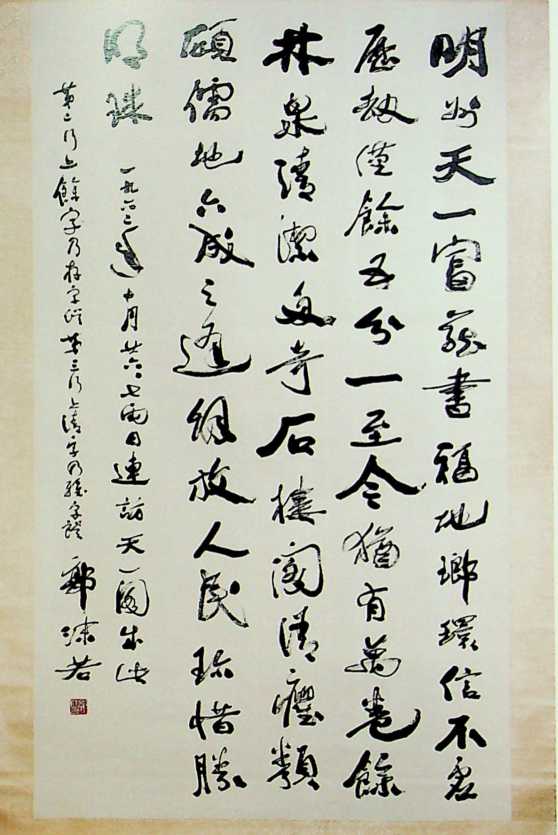 明州天一富藏書福地瑯環信不虛
歷劫僅餘五分一至今猶有萬卷餘
林泉清潔多奇石樓閣清癯類
碩儒地六成之逢解放人民珍惜勝
明珠 一九六二年十月廿六七兩日連訪天一閣作此
第二行上餘字乃存字誤第三行上清字乃雅字誤 郭沫若